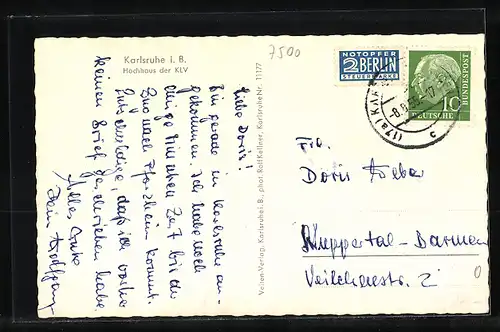 Karlsruhe i. B.
Hochhaus der KLV
7500
NOTOPFER
2 BERLIN
STEUERMARKE
10
DEUTSCHE
BUNDESPOST
(17a) KARLS
c
Liebe Doris!
Bin gerade in Karlsruhe an-
gekommen. Ich habe noch
einige Minuten Zeit bis der
Zug nach Pforzheim kommt.
Entschuldige, daß ich vorher
keinen Brief geschrieben habe.
Alles Gute
Dein Wolfgang
Veiten-Verlag, Karlsruhe i. B., phot. Rolf Kellner, Karlsruhe Nr. 11177
Frl.
Doris Weber
Wuppertal-Barmen
Veilchenstr. 2